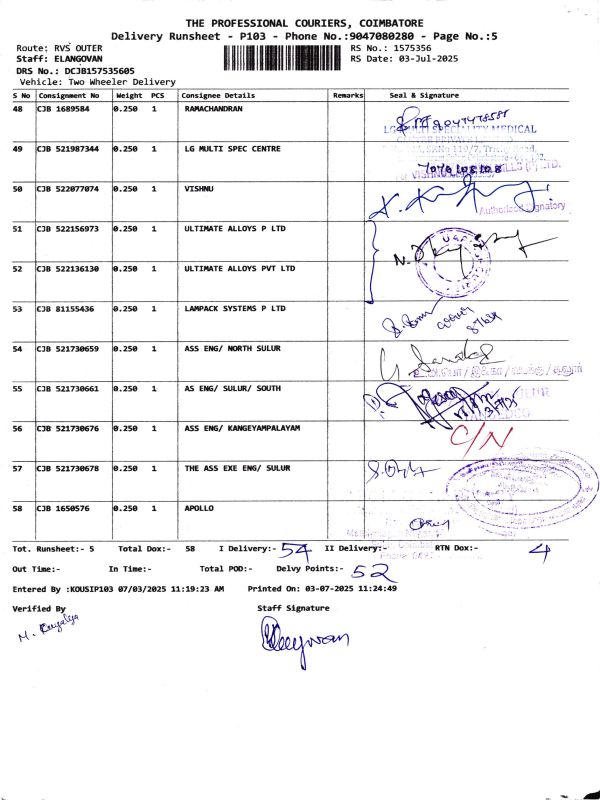 THE PROFESSIONAL COURIERS, COIMBATORE
Delivery Runsheet - P103 - Phone No.:9047080280 - Page No.:5
Route: RVS OUTER
RS No.: 1575356
Staff: ELANGOVAN
RS Date: 03-Jul-2025
DRS No.: DCJB157535605
Vehicle: Two Wheeler Delivery
S No Consignment No Weight PCS Consignee Details Remarks Seal & Signature
48 CJB 1689584 0.250 1 RAMACHANDRAN
LG MULTI SPECIALITY MEDICAL
49 CJB 521987344 0.250 1 LG MULTI SPEC CENTRE
50 CJB 522077074 0.250 1 VISHNU
Authorised Signatory
51 CJB 522156973 0.250 1 ULTIMATE ALLOYS P LTD
52 CJB 522136130 0.250 1 ULTIMATE ALLOYS PVT LTD
53 CJB 81155436 0.250 1 LAMPACK SYSTEMS P LTD
54 CJB 521730659 0.250 1 ASS ENG/ NORTH SULUR
55 CJB 521730661 0.250 1 AS ENG/ SULUR/ SOUTH
56 CJB 521730676 0.250 1 ASS ENG/ KANGEYAMPALAYAM
C/N
57 CJB 521730678 0.250 1 THE ASS EXE ENG/ SULUR
58 CJB 1650576 0.250 1 APOLLO
Tot. Runsheet:- 5 Total Dox:- 58 I Delivery:- 54 II Delivery:- RTN Dox:- 4
Out Time:- In Time:- Total POD:- Delvy Points:- 52
Entered By :KOUSIP103 07/03/2025 11:19:23 AM Printed On: 03-07-2025 11:24:49
Verified By Staff Signature